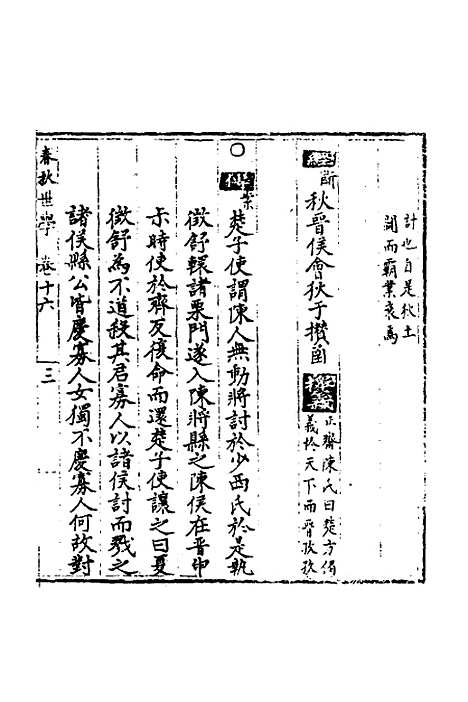 計也自是狄土
闢而霸業衰焉
經斷 秋晉侯會狄于攢函 正齋陳氏曰楚方倡
義於天下而晉孜孜
○
傳案 楚子使謂陳人無動將討於少西氏於是執
徵舒轘諸栗門遂入陳將縣之陳侯在晉申
尗時使於齊反復命而還楚子使讓之曰夏
徵舒為不道殺其君寡人以諸侯討而戮之
諸侯縣公皆慶寡人女獨不慶寡人何故對
春秋世學 卷十六 三